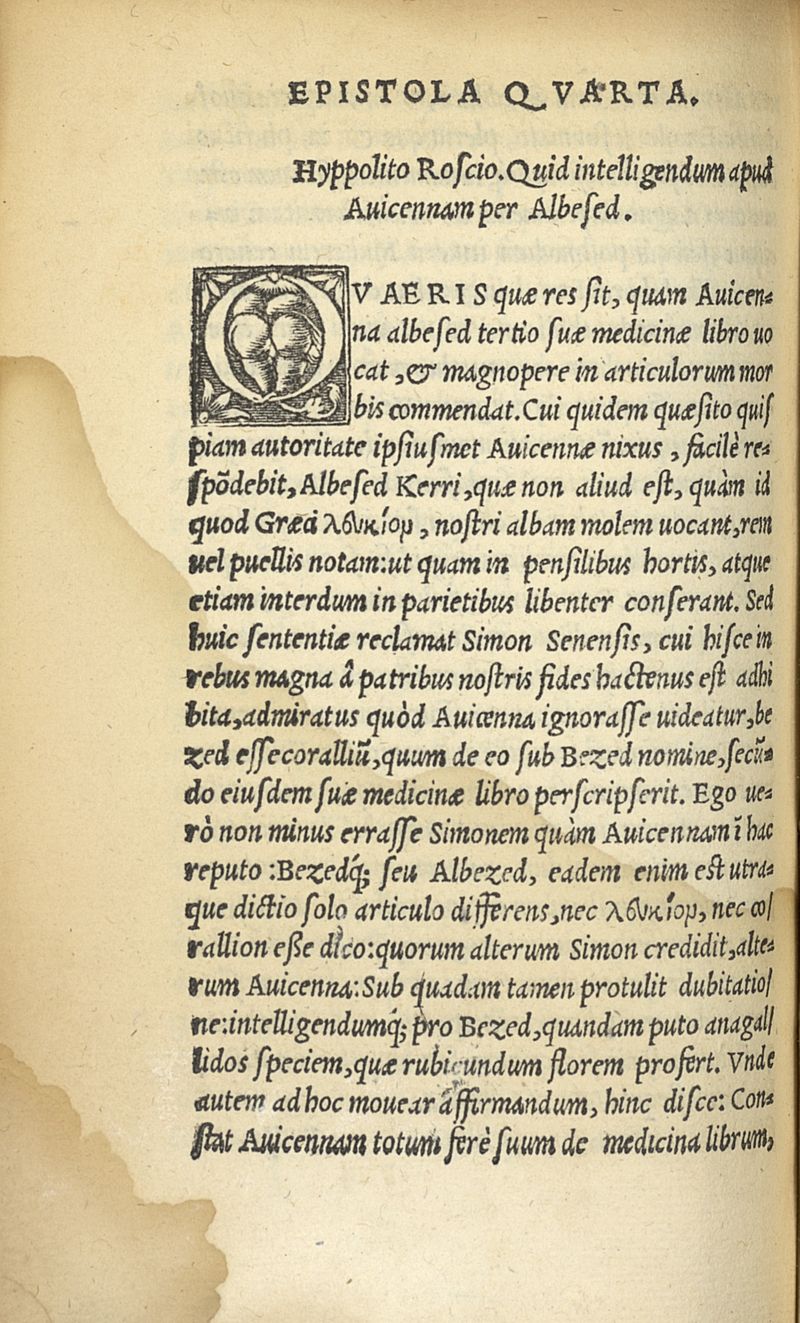 EPISTOLA QVARTA.
Hyppolito Roscio. Quid intelligendum apud
Auicennam per Albesed.
QVAERIS quæ res sit, quam Auicen-
na albesed tertio suæ medicinæ libro uo
cat, & magnopere in articulorum mor
bis commendat. Cui quidem quæsito quis
piam autoritate ipsiusmet Auicennæ nixus, facilè re-
spõdebit, Albesed Kerri, quæ non aliud est, quàm id
quod Græci , nostri albam molem uocant, rem
uel puellis notam: ut quam in pensilibus hortis, atque
etiam interdum in parietibus libenter conserant. Sed
huic sententiæ reclamat Simon Senensis, cui hisce in
rebus magna â patribus nostris fides hactenus est adhi
bita, admiratus quòd Auicenna ignorasse uideatur, be
zed esse coralliũ, quum de eo sub Bezed nomine, secũ-
do eiusdem suæ medicinæ libro perscripserit. Ego ue-
rò non minus errasse Simonem quàm Auicennam ĩ hac
reputo: Bezedq́; seu Albezed, eadem enim est utra-
que dictio solo articulo differens, nec , nec co/
rallion esse dico: quorum alterum Simon credidit, alte-
rum Auicenna: Sub quadam tamen protulit dubitatio/
ne: intelligendumq́; pro Bezed, quandam puto anagal/
lidos speciem, quæ rubicundum florem profert. Vnde
autem ad hoc mouear affirmandum, hinc disce: Con-
stat Auicennam totum ferè suum de medicina librum,